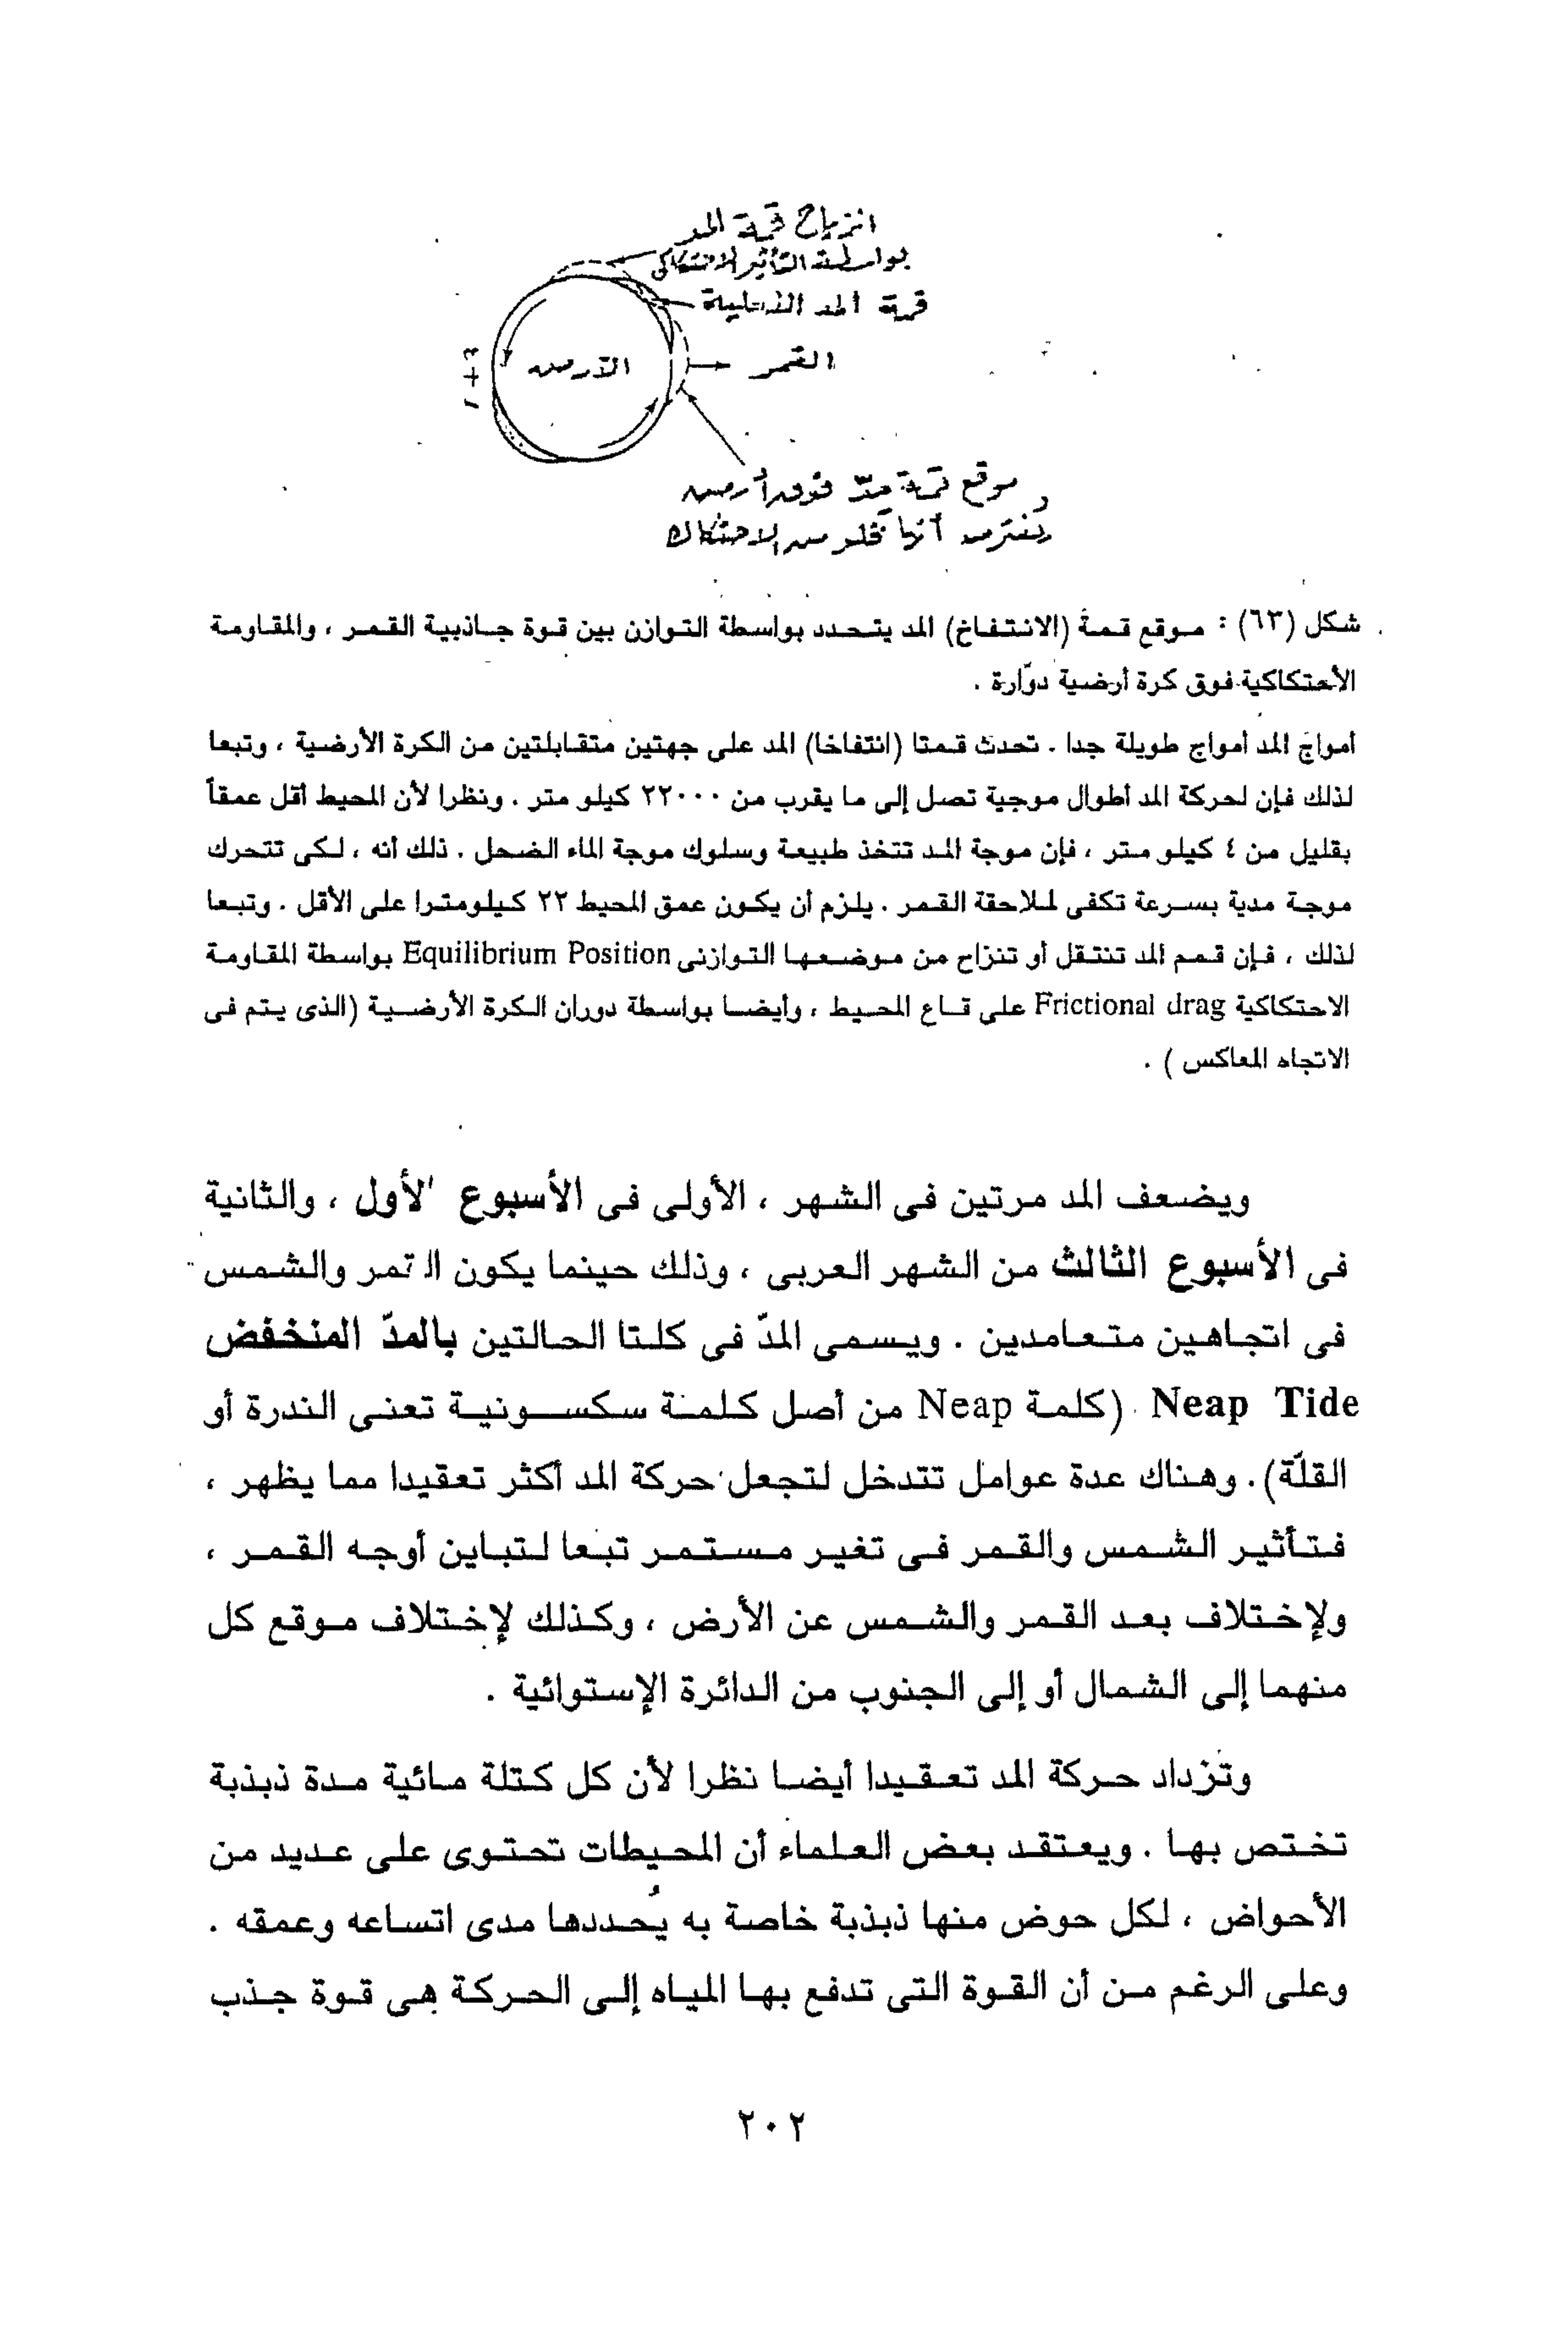 انزياح قمة المد
بواسطة التأثير الاحتكاكى
قمة المد الفعلية
القمر
الأرض
موقع قمة مدّ فوق أرض
يفترض أنها تخلو من الاحتكاك
شكل (٦٣) : موقع قمة (الانتفاخ) المد يتحدد بواسطة التوازن بين قوة جاذبية القمر ، والمقاومة
الأحتكاكية فوق كرة أرضية دوّارة .
أمواج المد أمواج طويلة جدا . تحدث قمتا (انتفاخا) المد على جهتين متقابلتين من الكرة الأرضية ، وتبعا
لذلك فإن لحركة المد أطوال موجية تصل إلى ما يقرب من ٢٢٠٠٠ كيلو متر . ونظرا لأن المحيط أقل عمقاً
بقليل من ٤ كيلو متر ، فإن موجة المد تتخذ طبيعة وسلوك موجة الماء الضحل . ذلك أنه ، لكى تتحرك
موجة مدية بسرعة تكفى لملاحقة القمر . يلزم أن يكون عمق المحيط ٢٢ كيلومترا على الأقل . وتبعا
لذلك ، فإن قمم المد تنتقل أو تنزاح من موضعها التوازنى Equilibrium Position بواسطة المقاومة
الاحتكاكية Frictional drag على قاع المحيط ، وأيضا بواسطة دوران الكرة الأرضية (الذى يتم فى
الاتجاه المعاكس ) .
ويضعف المد مرتين فى الشهر ، الأولى فى الأسبوع الأول ، والثانية
فى الأسبوع الثالث من الشهر العربى ، وذلك حينما يكون القمر والشمس
فى اتجاهين متعامدين . ويسمى المدّ فى كلتا الحالتين بالمدّ المنخفض
Neap Tide (كلمة Neap من أصل كلمة سكسونية تعنى الندرة أو
القلّة). وهناك عدة عوامل تتدخل لتجعل حركة المد أكثر تعقيدا مما يظهر ،
فتأثير الشمس والقمر فى تغير مستمر تبعا لتباين أوجه القمر ،
ولإختلاف بعد القمر والشمس عن الأرض ، وكذلك لإختلاف موقع كل
منهما إلى الشمال أو إلى الجنوب من الدائرة الإستوائية .
وتزداد حركة المد تعقيدا أيضا نظرا لأن كل كتلة مائية مدة ذبذبة
تختص بها . ويعتقد بعض العلماء أن المحيطات تحتوى على عديد من
الأحواض ، لكل حوض منها ذبذبة خاصة به يُحددها مدى اتساعه وعمقه .
وعلى الرغم من أن القوة التى تدفع بها المياه إلى الحركة هى قوة جذب
٢٠٢